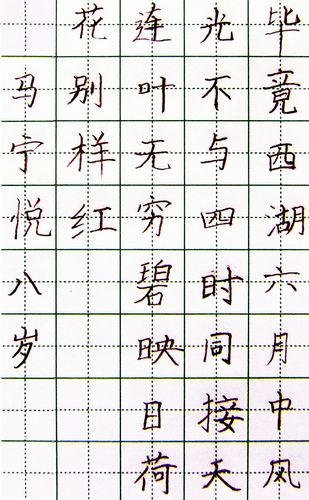 毕竟西湖六月中风
光不与四时同接天
连叶无穷碧映日荷
花别样红
马宁悦八岁